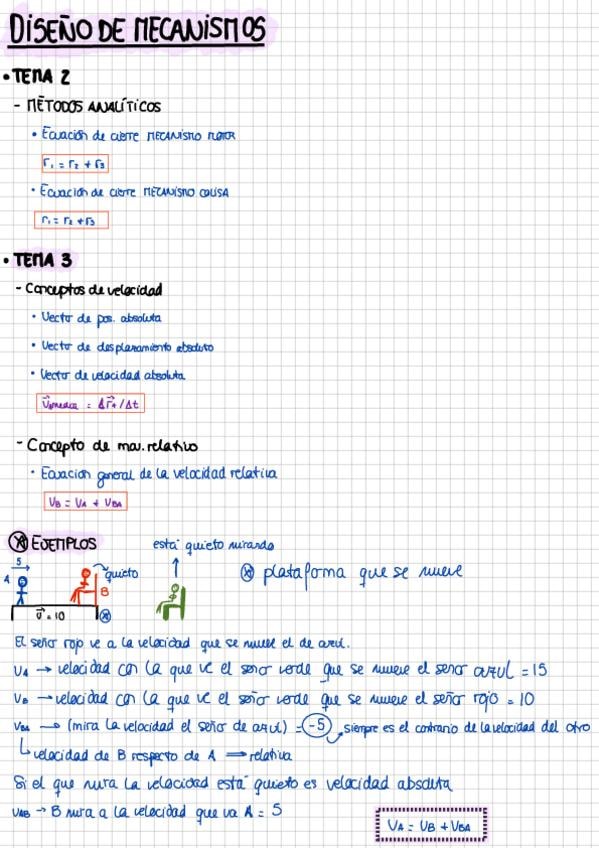 DISEÑO DE MECANISMOS
• TEMA 2
- MÉTODOS ANALÍTICOS
• Ecuación de cierre MECANISMO MOTOR
r₁ = r₂ + r₃
• Ecuación de cierre MECANISMO COLISA
r₁ = r₂ + r₃
• TEMA 3
- Conceptos de velocidad
• Vector de pos. absoluta
• Vector de desplazamiento absoluto
• Vector de velocidad absoluta
v⃗media = Δr⃗/Δt
- Concepto de mov. relativo
• Ecuación general de la velocidad relativa
VB = VA + VBA
* EJEMPLOS
está quieto mirando
5
A
quieto
B
v⃗ = 10
*
* plataforma que se mueve
El señor rojo ve a la velocidad que se mueve el de azul.
VA → velocidad con la que ve el señor verde que se mueve el señor azul = 15
VB → velocidad con la que ve el señor verde que se mueve el señor rojo = 10
VBA → (mira la velocidad el señor de azul) = -5 siempre es el contrario de la velocidad del otro
velocidad de B respecto de A ⇒ relativa
Si el que mira la velocidad está quieto es velocidad absoluta
VAB → B mira a la velocidad que va A = 5
VA = VB + VBA